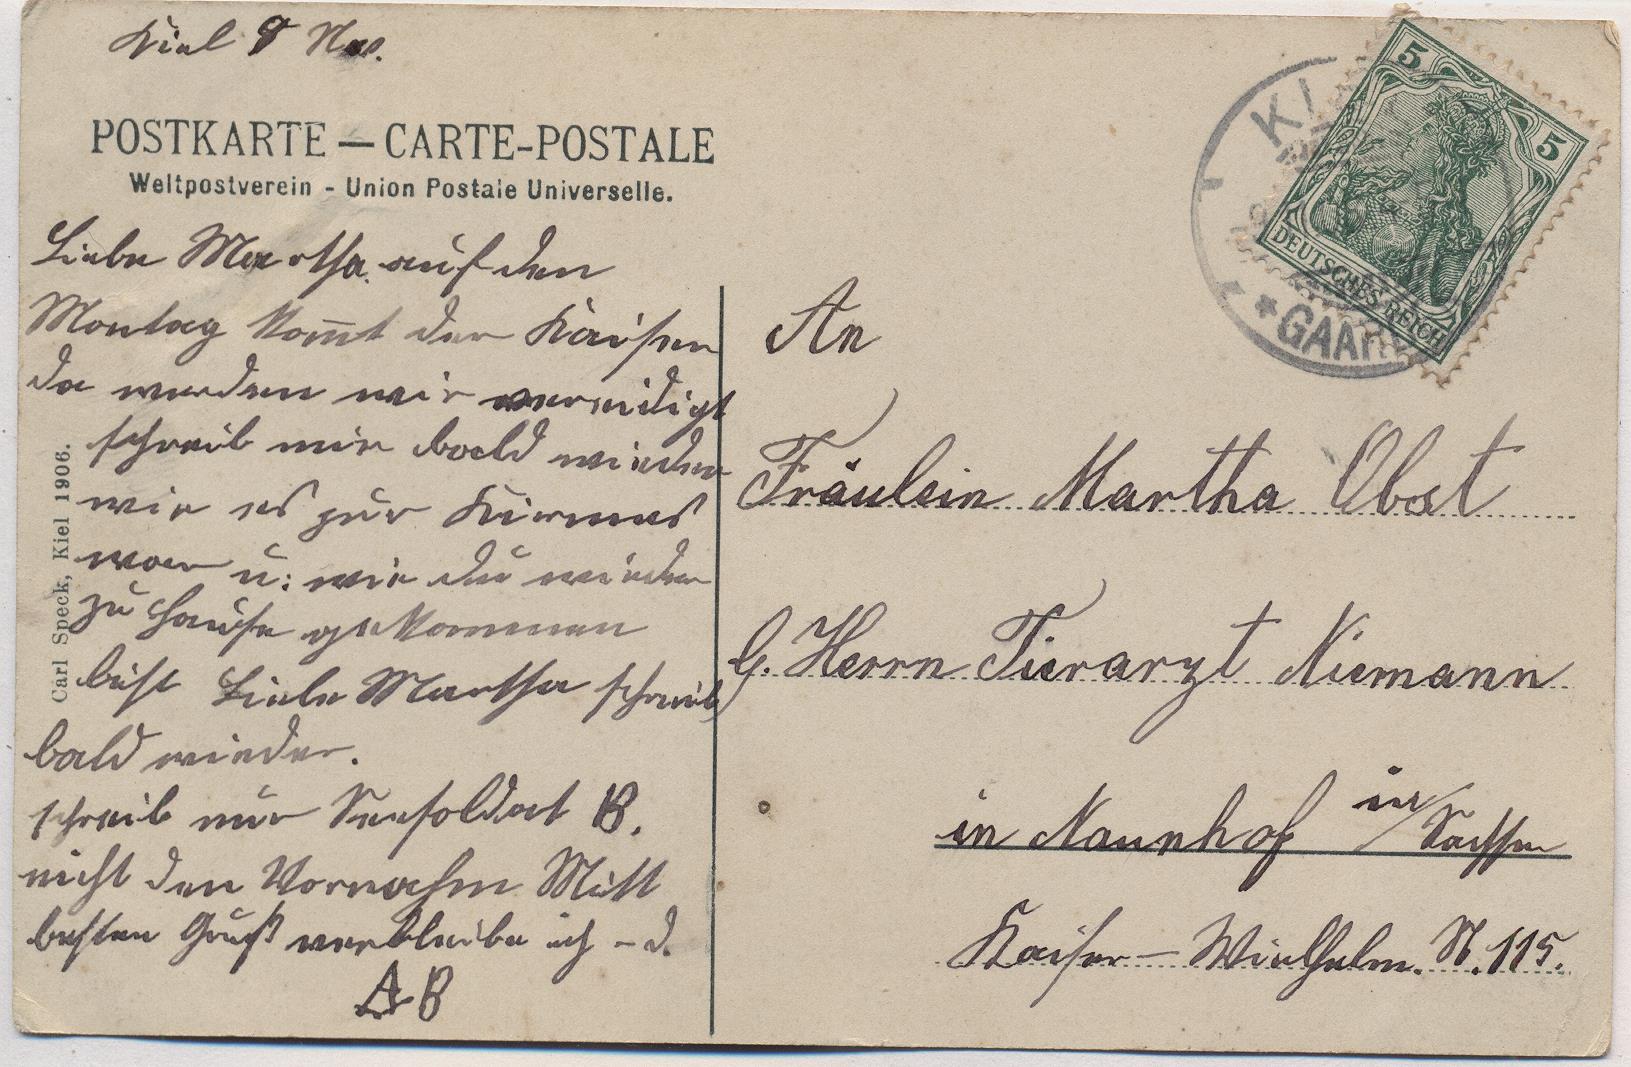 Kiel 8 Nov.
POSTKARTE — CARTE-POSTALE
Weltpostverein - Union Postale Universelle.
Liebe Martha auf den
Montag kom̅t der Kaiser
da werden wir vereidigt
schreib mir bald wieder
wie es zur Kirmes
war u: wie du wieder
zu Hause gekommen
bist Liebe Martha schreib
bald wieder.
schreib nur Seesoldat B.
nicht den Vornahm Mitt
besten Gruß verbleibe ich – d.
AB
Carl Speck, Kiel 1906.
5
5
DEUTSCHES REICH
*GAARD
An
Fräulein Martha Obst
b. Herrn Tierarzt Niemann
in Naunhof in/Sachsen
Kaiser – Wielhelm. N. 115.